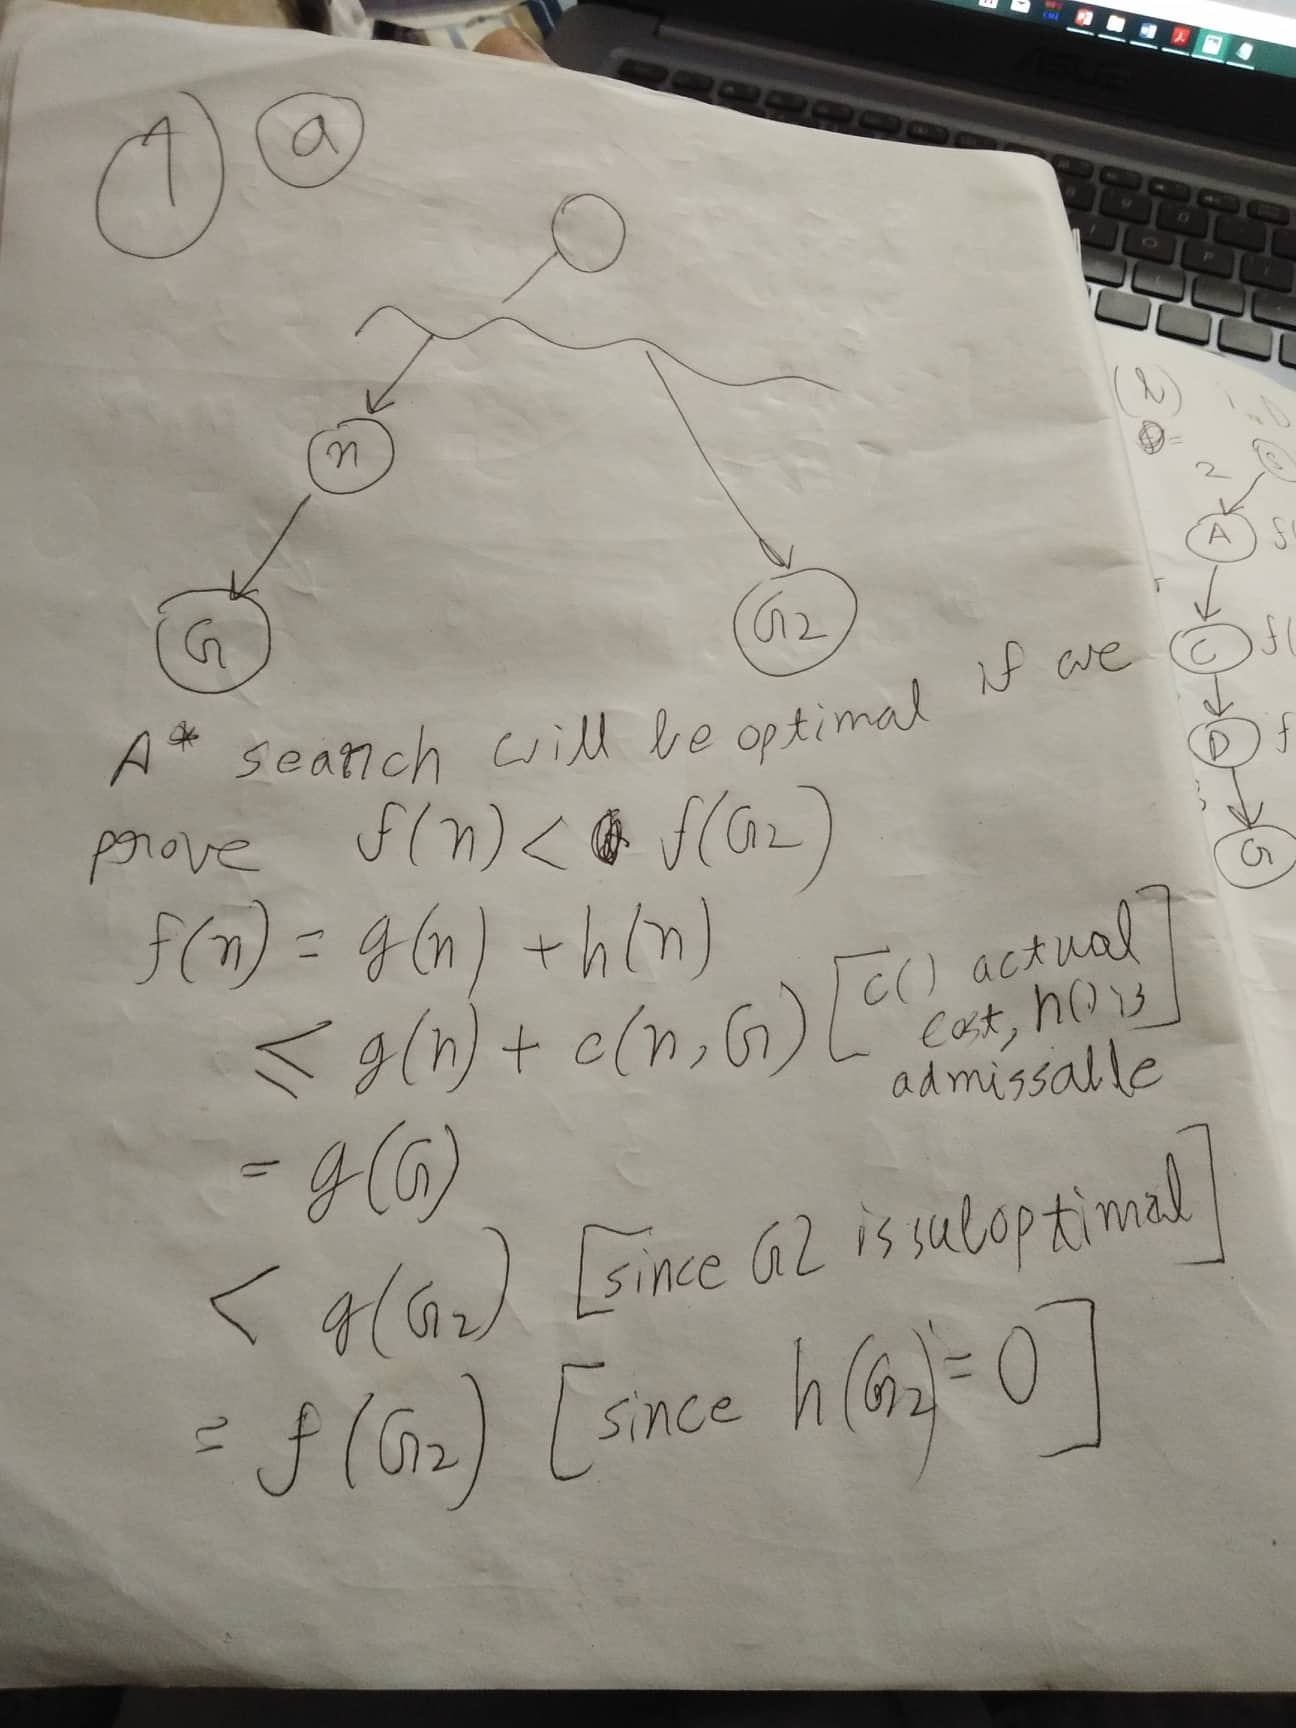 1 a
n
G
G2
A* search will be optimal if we
prove f(n) < f(G2)
f(n) = g(n) + h(n)
≤ g(n) + c(n, G) [c() actual
cost, h() is]
admissable
= g(G)
< g(G2) [since G2 is suboptimal]
= f(G2) [since h(G2) = 0]
ASUS
(2)
2
A f(
C f(
D f
G